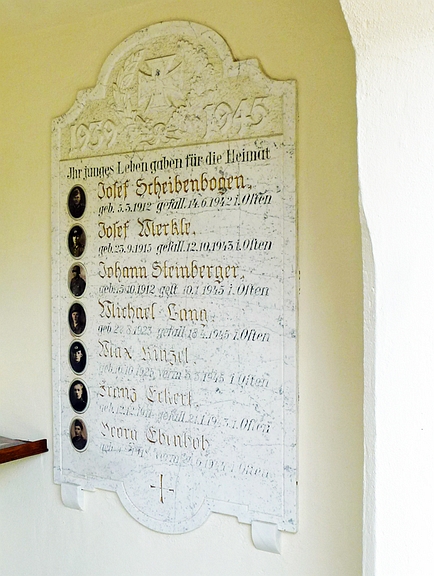 1939 1945
Ihr junges Leben gaben für die Heimat
Josef Scheibenbogen.
geb. 5.3.1912 gefall. 14.6.1942 i. Osten
Josef Merkle.
geb. 23.9.1915 gefall. 12.10.1943 i. Osten
Johann Steinberger.
geb. 15.10.1912 gefl. 10.1.1945 i. Osten
Michael Lang.
1923 gefall. 1945 i. Osten
Max Kinzel.
verm. 1945 i. Osten
Franz Eckert.
gefall. i. Osten
Georg
i. Osten